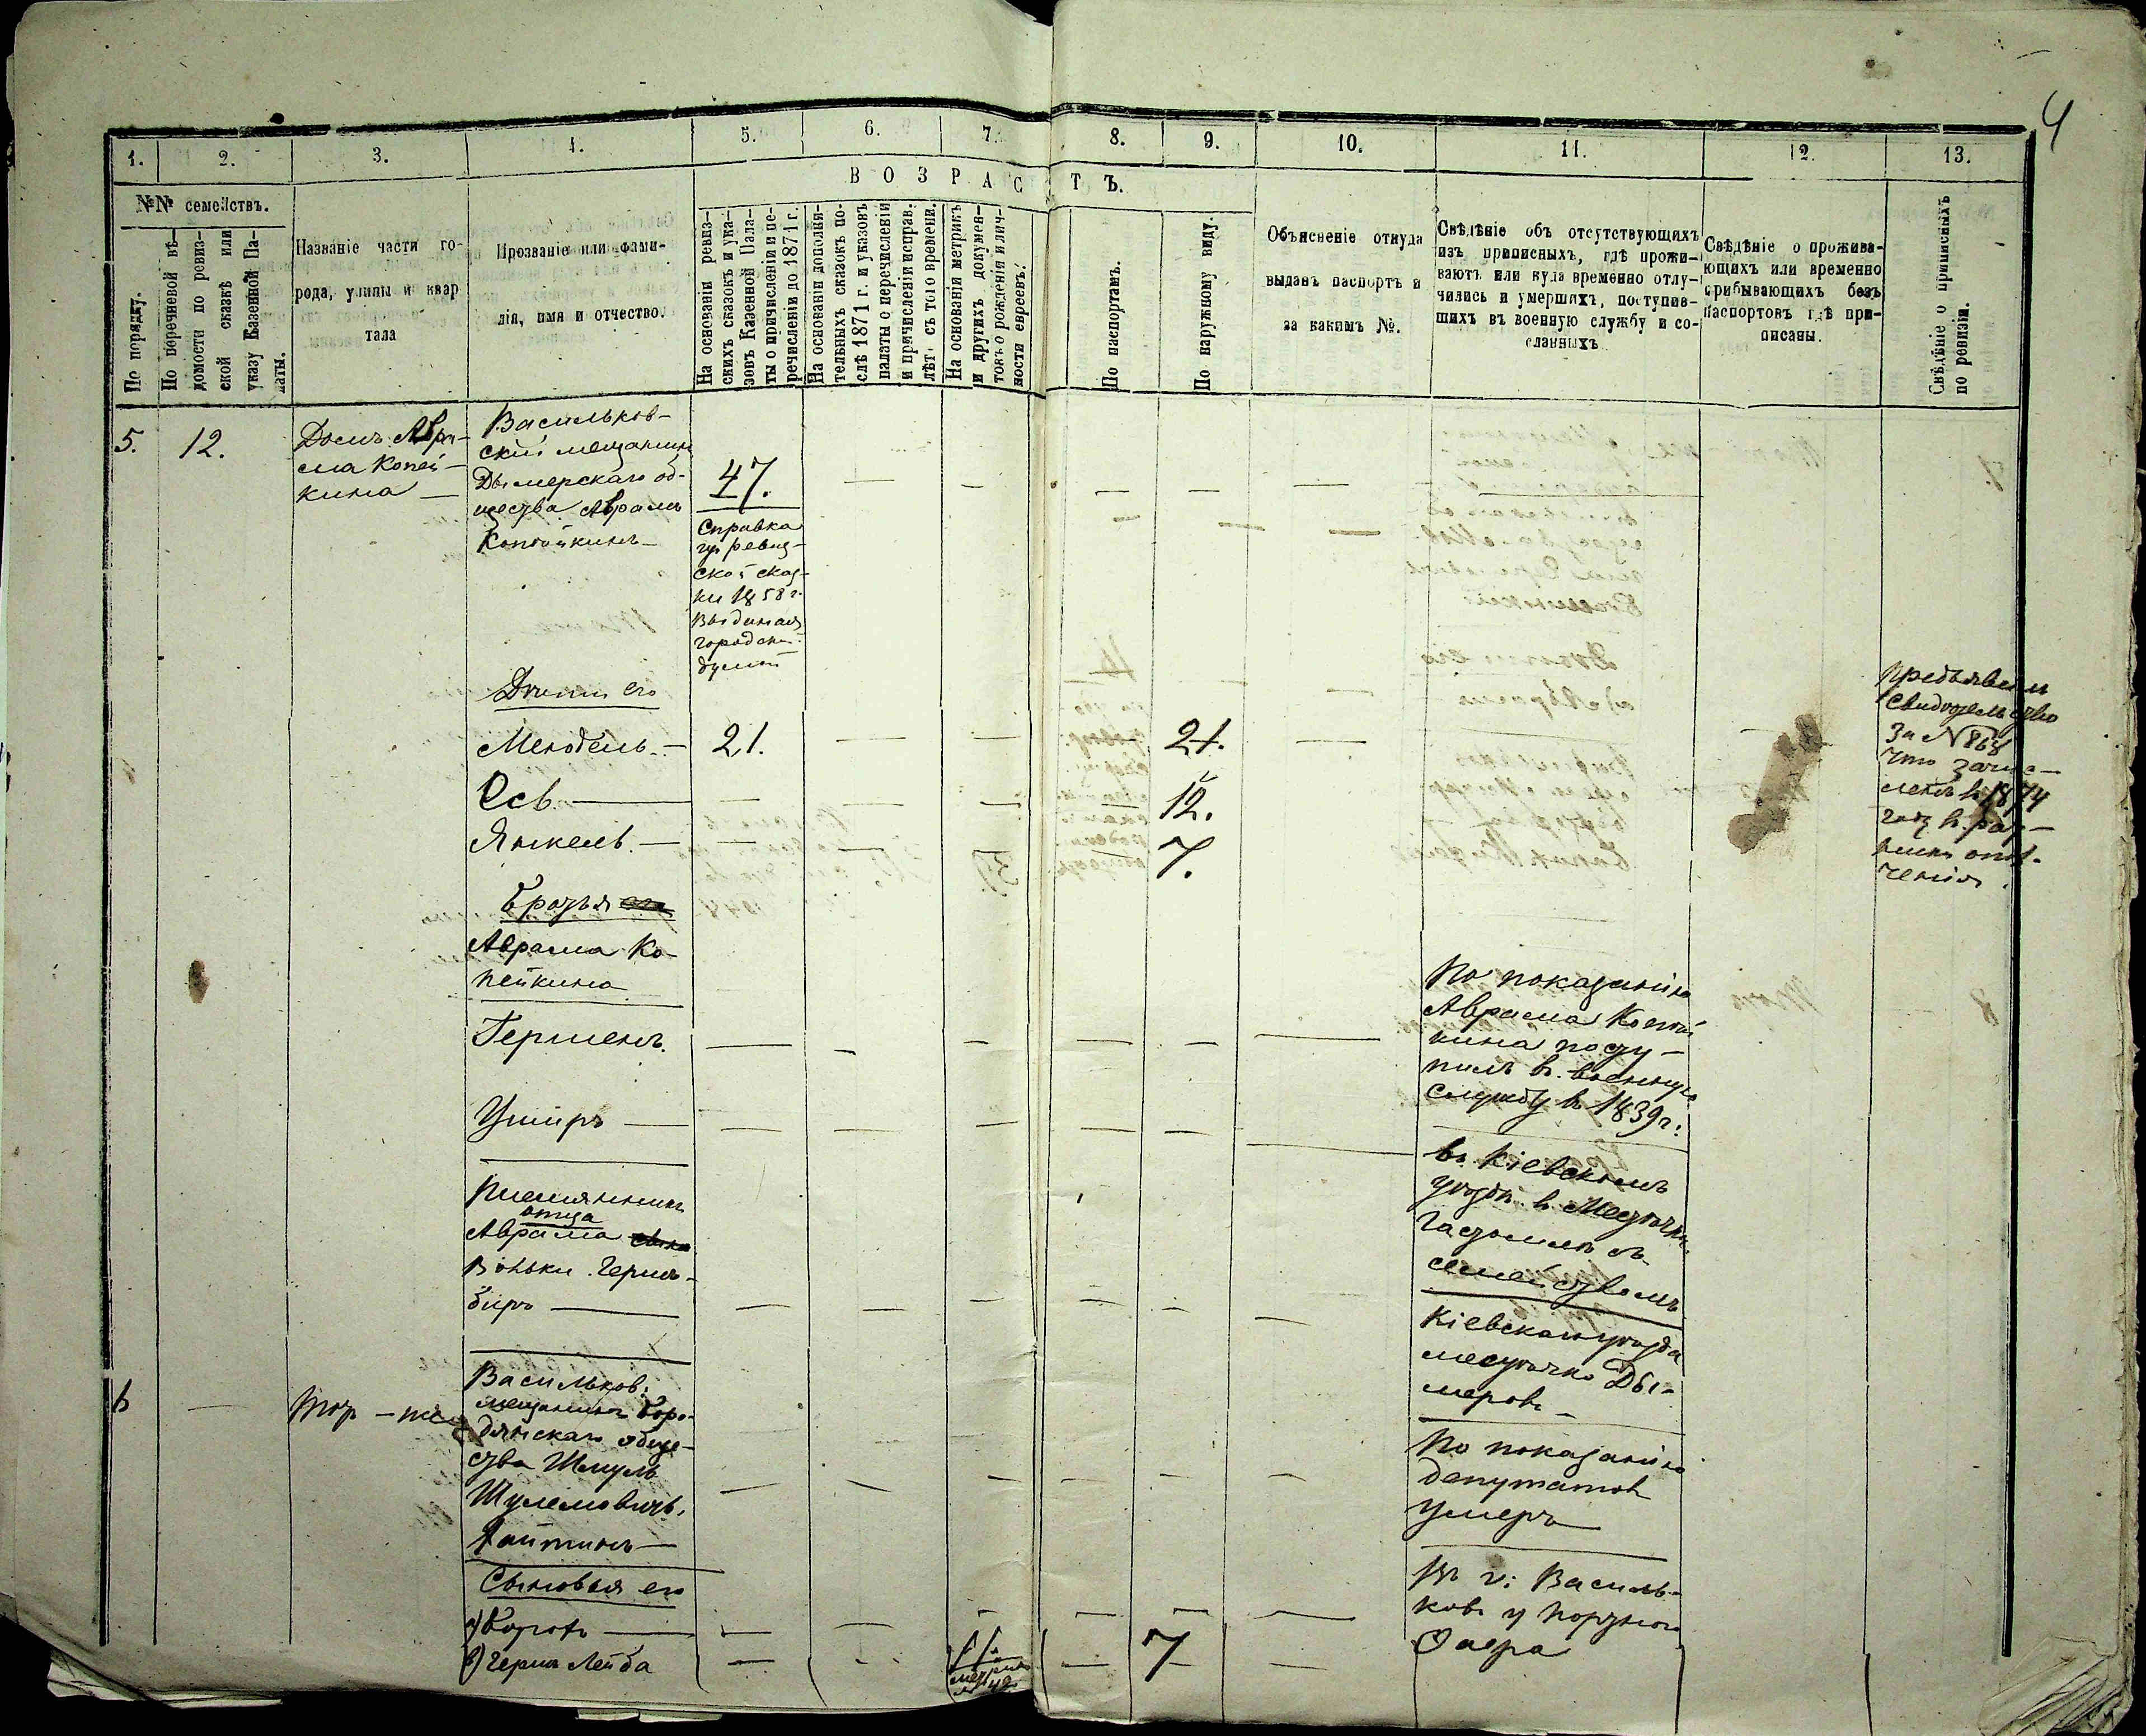 4
1. 2. 3. 4. 5. 6. 7. 8. 9. 10. 11. 12. 13.
№№ семействъ.
ВОЗРАСТЪ.
По порядку.
По перечневой вѣ-
домости по ревиз-
ской сказкѣ или
указу Казенной Па-
латы.
Названіе части го-
рода, улицы и квар
тала
Прозваніе или фами-
лія, имя и отчество.
На основаніи ревиз-
скихъ сказокъ и ука-
зовъ Казенной Пала-
ты о причисленіи и пе-
речисленіи до 1871 г.
На основаніи дополни-
тельныхъ сказокъ по-
слѣ 1871 г. и указовъ
палаты о перечисленіи
и причисленіи исправ.
лѣт. съ того времени.
На основаніи метрикъ
и другихъ докумен-
товъ о рожденіи и лич-
ности евреевъ.
По паспортамъ.
По наружному виду.
Объясненіе откуда
выданъ паспортъ и
за какимъ №.
Свѣдѣніе объ отсутствующихъ
изъ приписныхъ, гдѣ прожи-
ваютъ или куда временно отлу-
чились и умершихъ, поступив-
шихъ въ военную службу и со-
сланныхъ
Свѣдѣніе о прожива-
ющихъ или временно
прибывающихъ безъ
паспортовъ гдѣ при-
писаны.
Свѣдѣніе о приписныхъ
по ревизіи.
5. 12.
Домъ Авра-
ма Копей-
кина
Васильков-
скій мещанинъ
Дымерскаго об-
щества Аврамъ
Копѣйкинъ
47.
Справка
изъ ревиз-
ской сказ-
ки 1858 г.
выданая
городской
думой
Дѣти его
Мендель. 21. 21.
Ось. 12.
Янкель. 7.
Предъявилъ
свидѣтельство
за №
что зачис-
ленъ в 1874
году в рат-
ники опол-
ченія.
Братья его
Аврама Ко-
пейкина
Гершенъ.
По показанію
Аврама Копѣй
кина посту-
пилъ въ военную
службу въ 1839 г.
Ушеръ
въ Кіевскомъ
уѣздѣ в Местечке
съ
семействомъ
Племянникъ
отца
Аврама сына
Воньки Герш-
беръ
Кіевскаго уѣзда
местечко Ды-
меровъ
6
тотъ-же
Васильков.
мещанинъ Боро-
дянскаго обще-
ства Шмуль
Шулемовичъ
По показанію
депутатов
умеръ
Сыновья его
а) Борохъ
в) Герш Лейба 11. 7
метрика
В г. Василь-
кове у портного